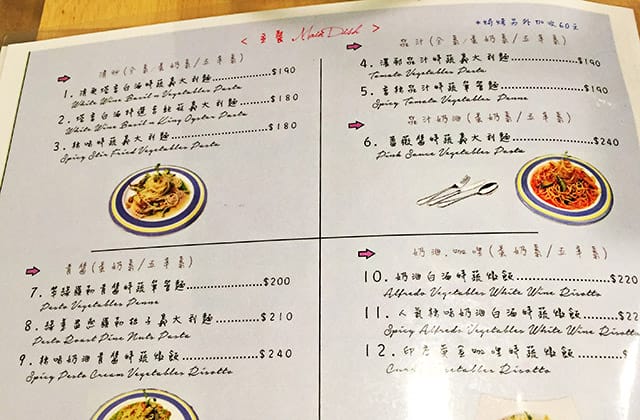 < 主餐 Main Dish >
*焗烤另外加收60元
清炒(全素/蛋奶素/五辛素)
1. 清爽塔香白酒時蔬義大利麵 $190
White Wine Basil n Vegetables Pasta
2. 塔香白酒杏鮑菇義大利麵 $180
White Wine Basil n King Oyster Pasta
3. 辣味時蔬義大利麵 $180
Spicy Stir Fried Vegetables Pasta
茄汁(全素/蛋奶素/五辛素)
4. 茄汁時蔬義大利麵 $190
Tomato Vegetables Pasta
5. 香辣茄汁時蔬筆管麵 $190
Spicy Tomato Vegetables Penne
茄汁奶油(蛋奶素/五辛素)
6. 薔薇醬時蔬義大利麵 $240
Pink Sauce Vegetables Pasta
青醬(蛋奶素/五辛素)
7. 羅勒青醬時蔬筆管麵 $200
Pesto Vegetables Penne
8. 羅勒松子義大利麵 $210
Pesto Roast Pine Nuts Pasta
9. 辣味奶油青醬時蔬燉飯 $240
Spicy Pesto Cream Vegetables Risotto
奶油.咖哩(蛋奶素/五辛素)
10. 奶油白酒時蔬燉飯 $220
Alfredo Vegetables White Wine Risotto
11. 人氣辣味奶油白酒時蔬燉飯 $22
Spicy Alfredo Vegetables White Wine Risotto
12. 印度黃金咖哩時蔬燉飯 $
Curry Vegetables Risotto